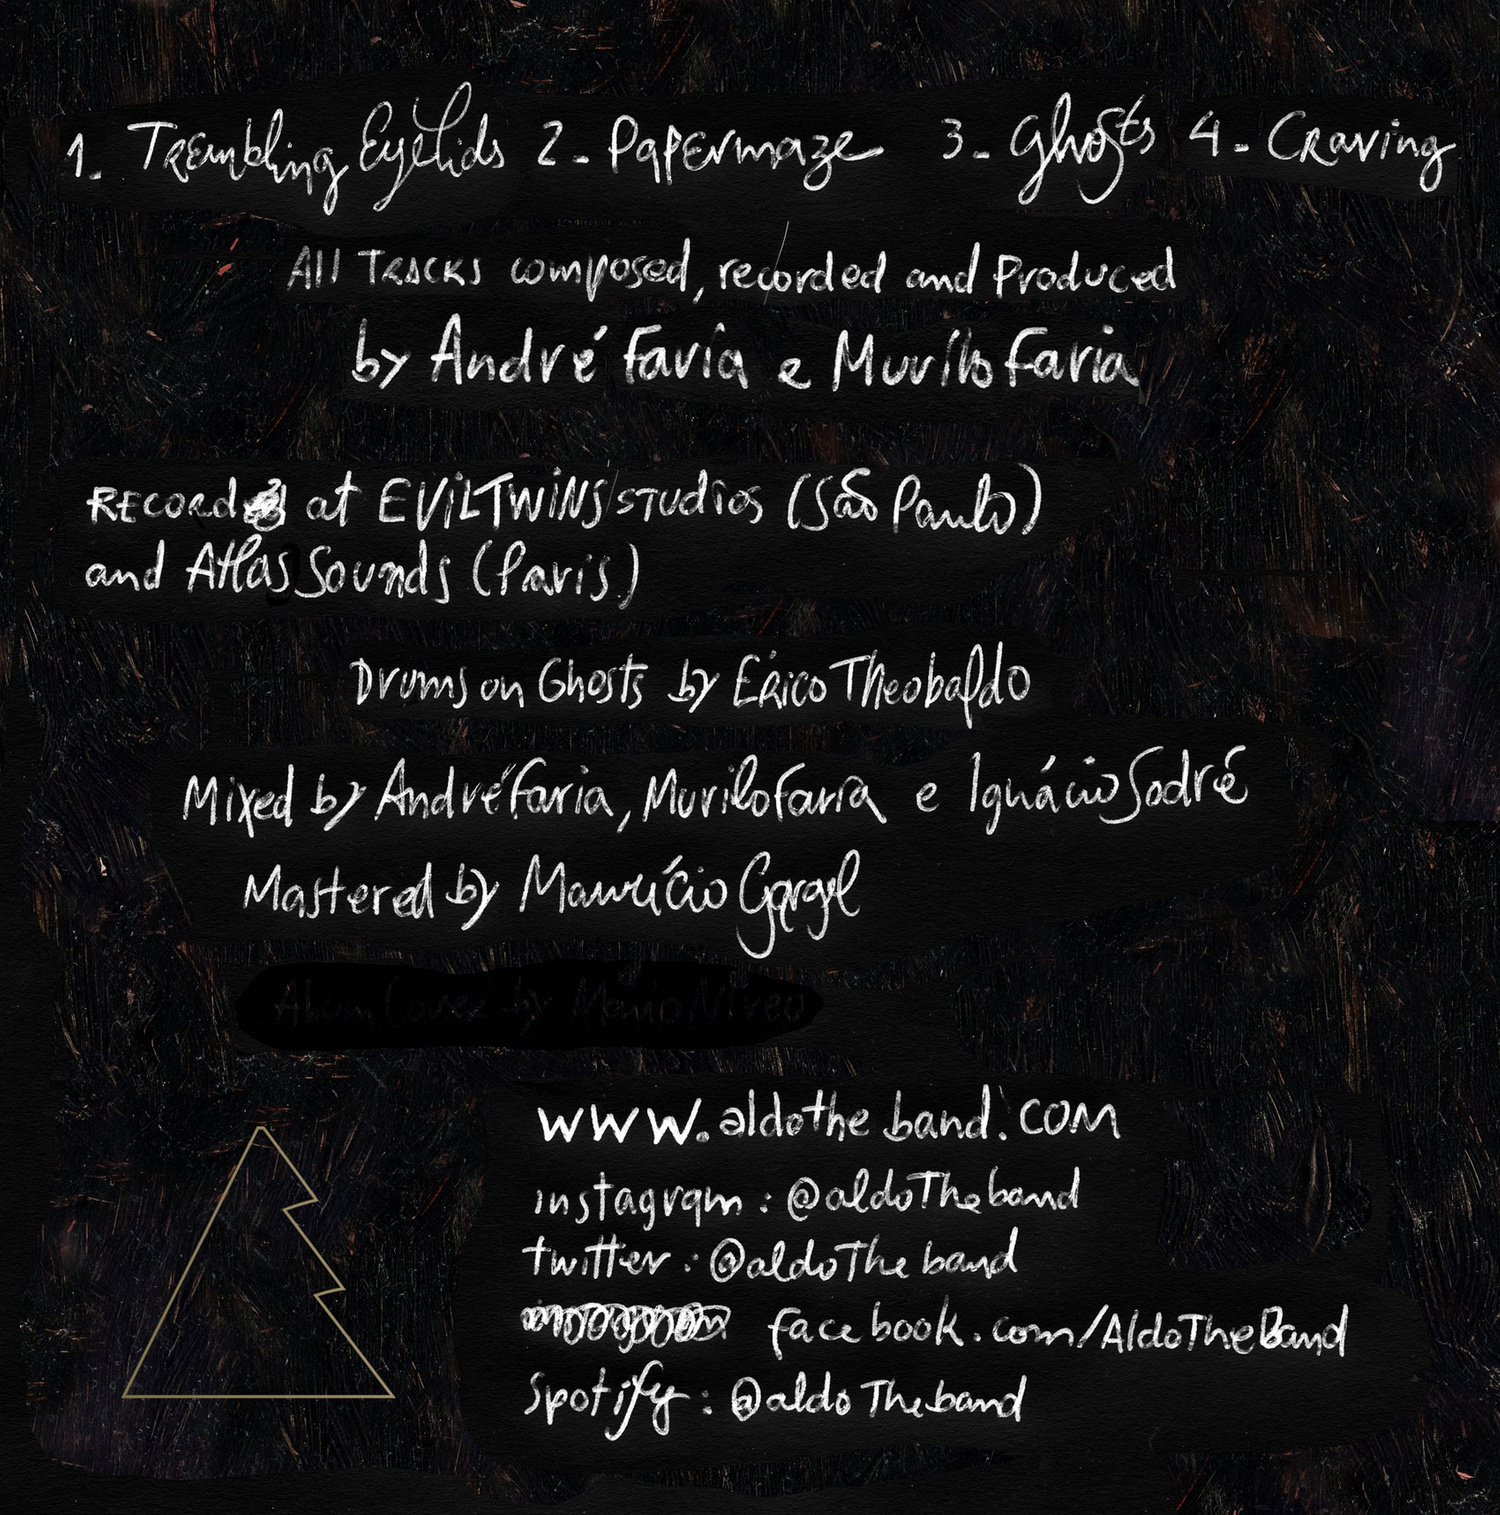 1. Trembling Eyelids 2 - Papermaze 3 - Ghosts 4 - Craving
All Tracks composed, recorded and Produced
by André Faria e Murilo Faria
Recorded at EVILTWINS studios (São Paulo)
and Atlas Sounds (Paris)
Drums on Ghosts by Érico Theobaldo
Mixed by André Faria, Murilo Faria e Ignácio Sodré
Mastered by Maurício Gargel
Cover by Mario
www.aldotheband.com
instagram : @aldoTheband
twitter : @aldoTheband
facebook.com/AldoTheBand
Spotify : @aldoTheband